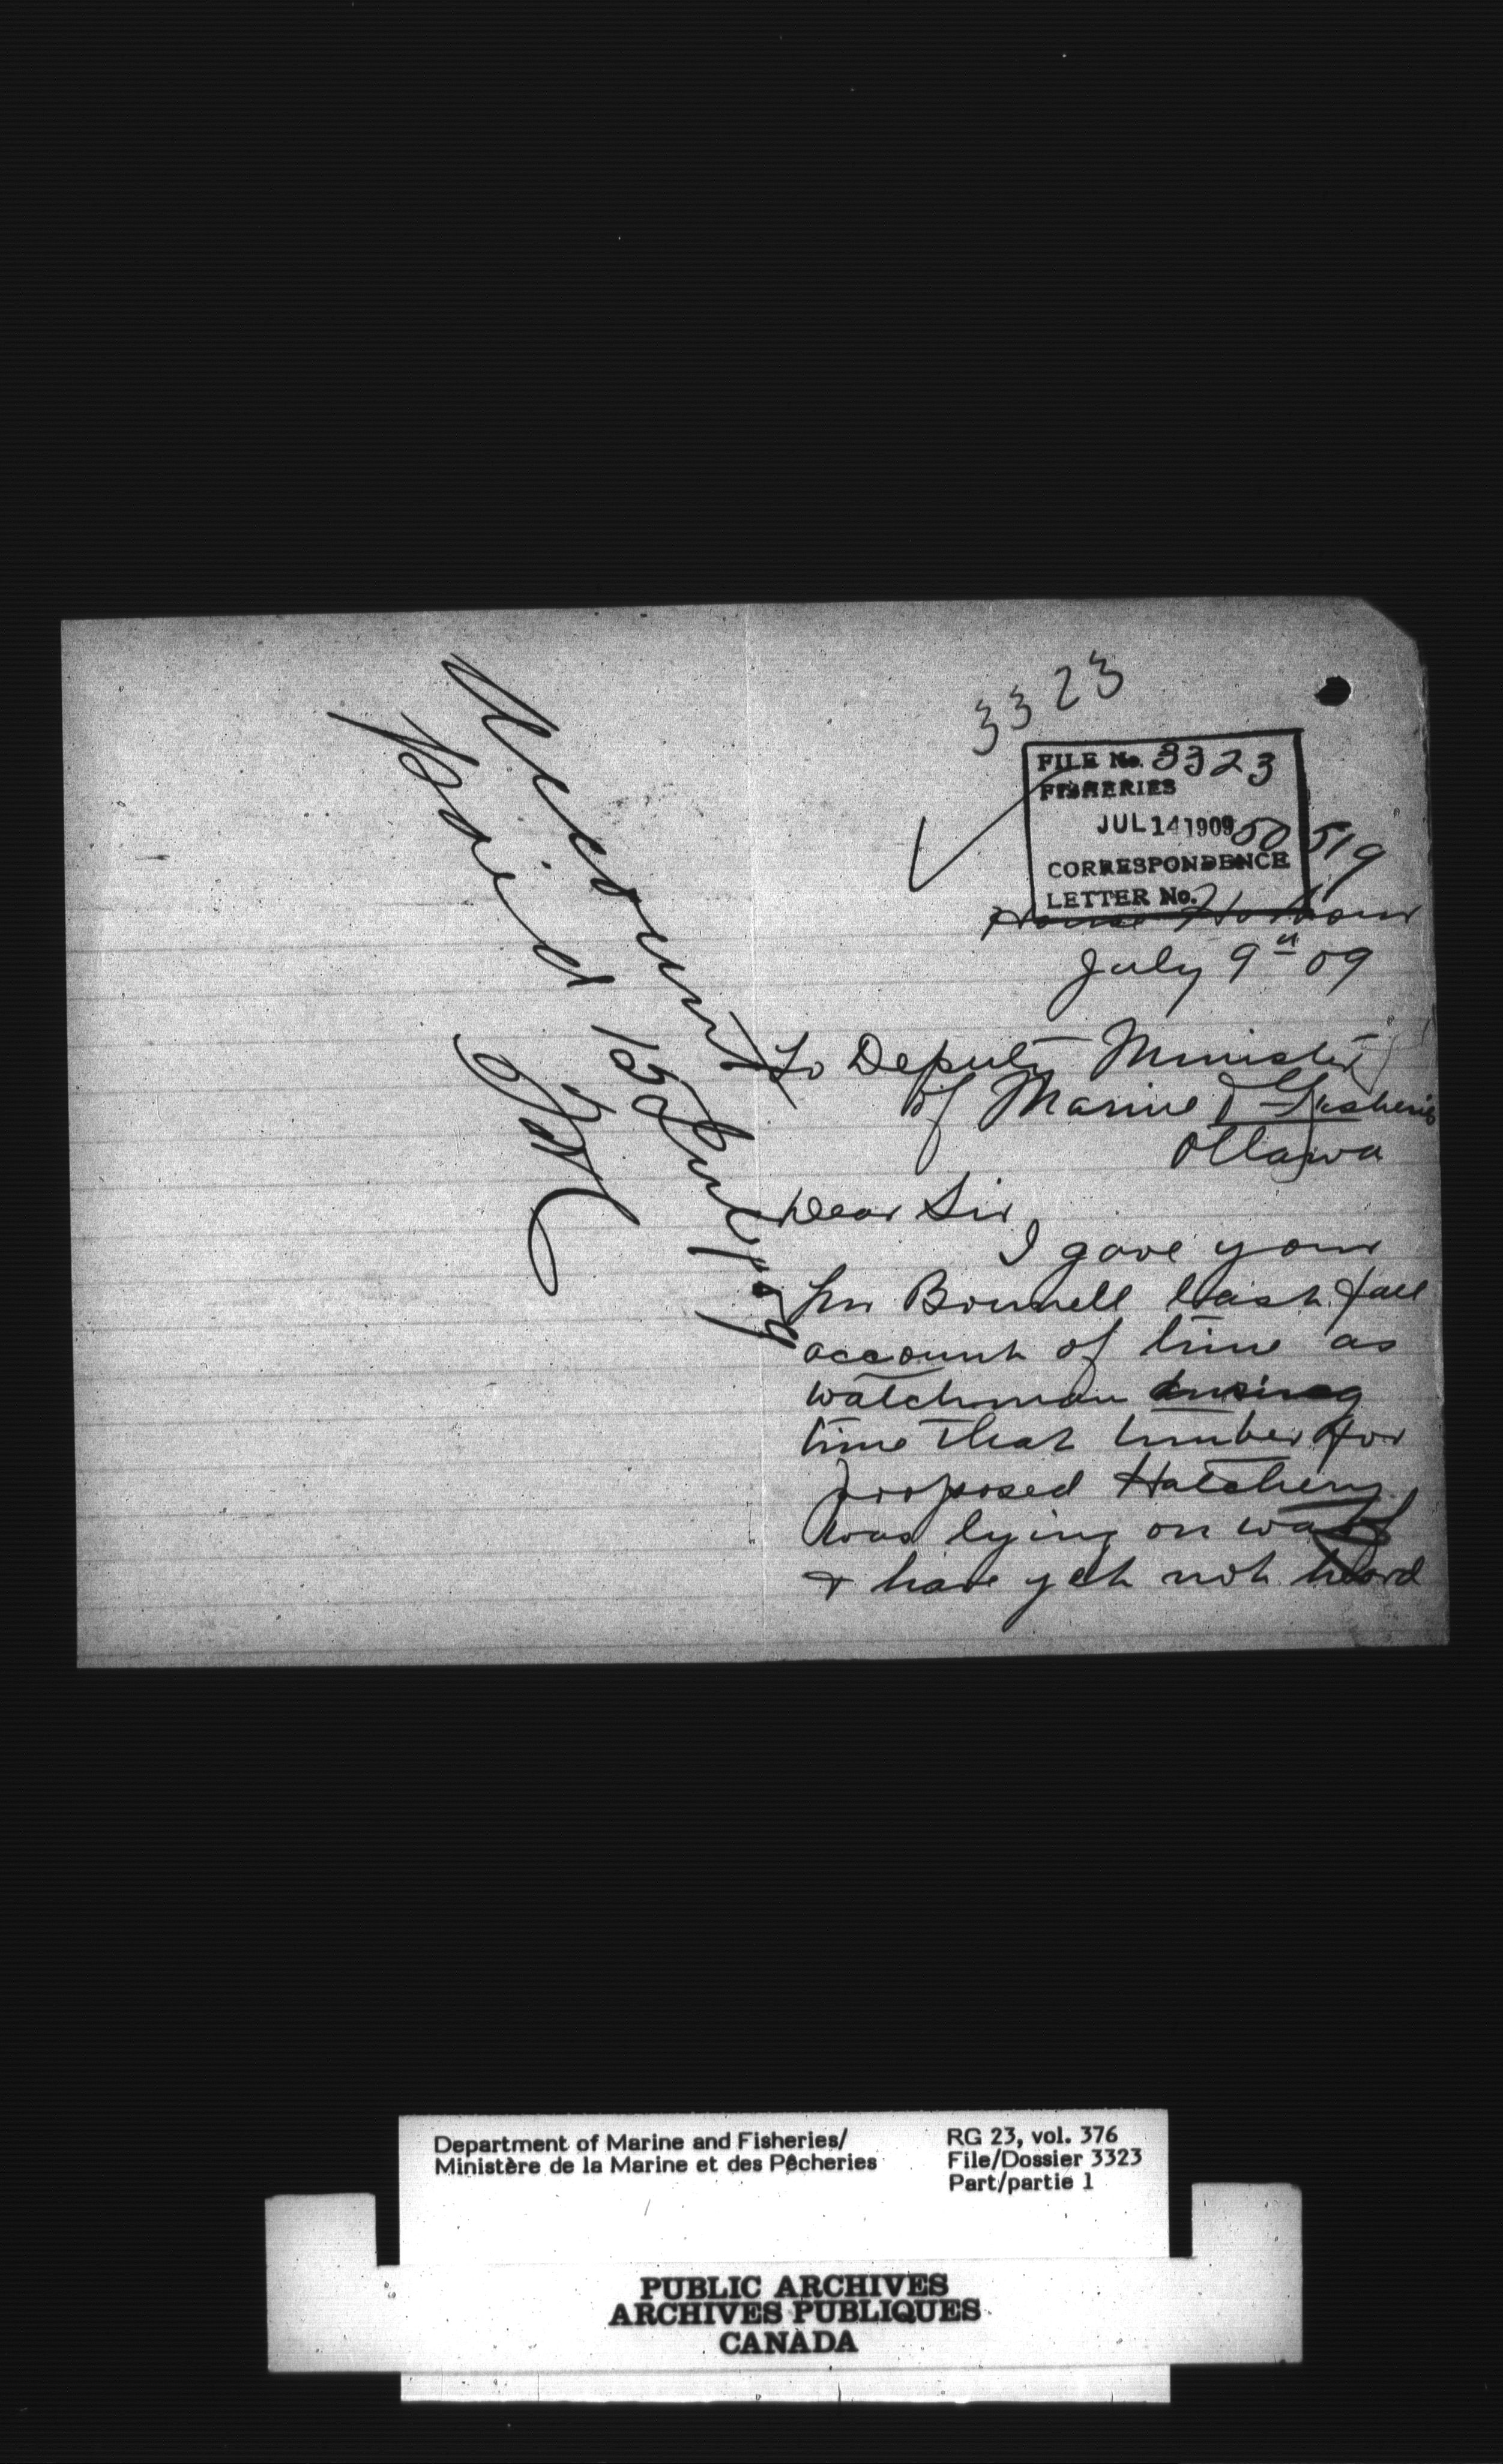 3323
FILE No. 3323
FISHERIES
JUL 14 1909 50519
CORRESPONDENCE
LETTER No.
July 9th 09
To Deputy Minister
of Marine & Fisheries
Ottawa
Dear Sir,
I gave your
Mr Bonnell last fall
account of time as
watchman during
time that lumber for
proposed Hatchery
was lying on warf
& have yet not heard
Account
Paid 15 July/09
Department of Marine and Fisheries/
Ministère de la Marine et des Pêcheries
RG 23, vol. 376
File/Dossier 3323
Part/partie 1
PUBLIC ARCHIVES
ARCHIVES PUBLIQUES
CANADA